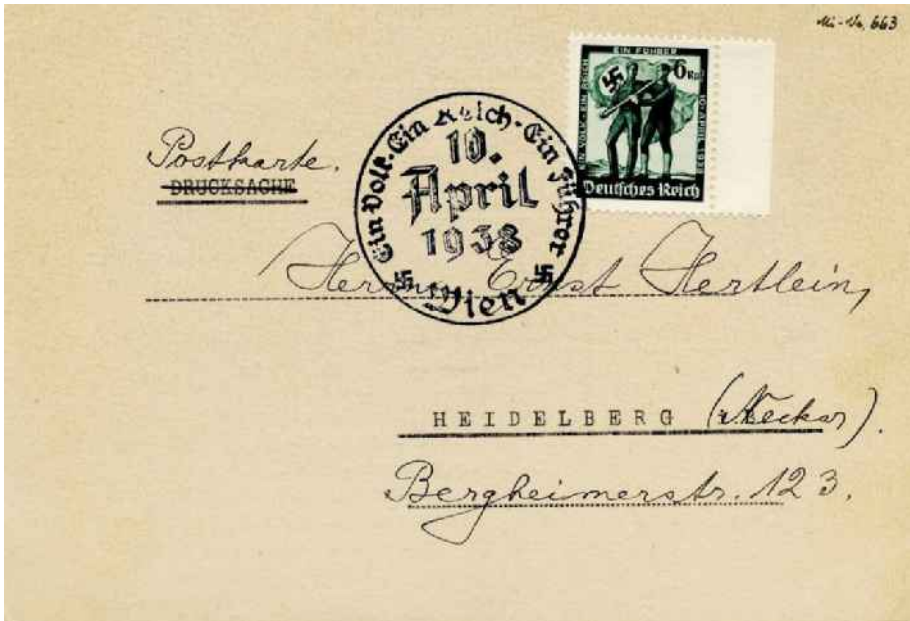 Mi-No. 663
EIN FÜHRER
EIN VOLK · EIN REICH
10. APRIL 1938
6 Rpf
Deutsches Reich
Ein Volk · Ein Reich · Ein Führer
10.
April
1938
Wien
Postkarte.
DRUCKSACHE
Herrn Ernst Hertlein,
HEIDELBERG (Neckar).
Bergheimerstr. 123.